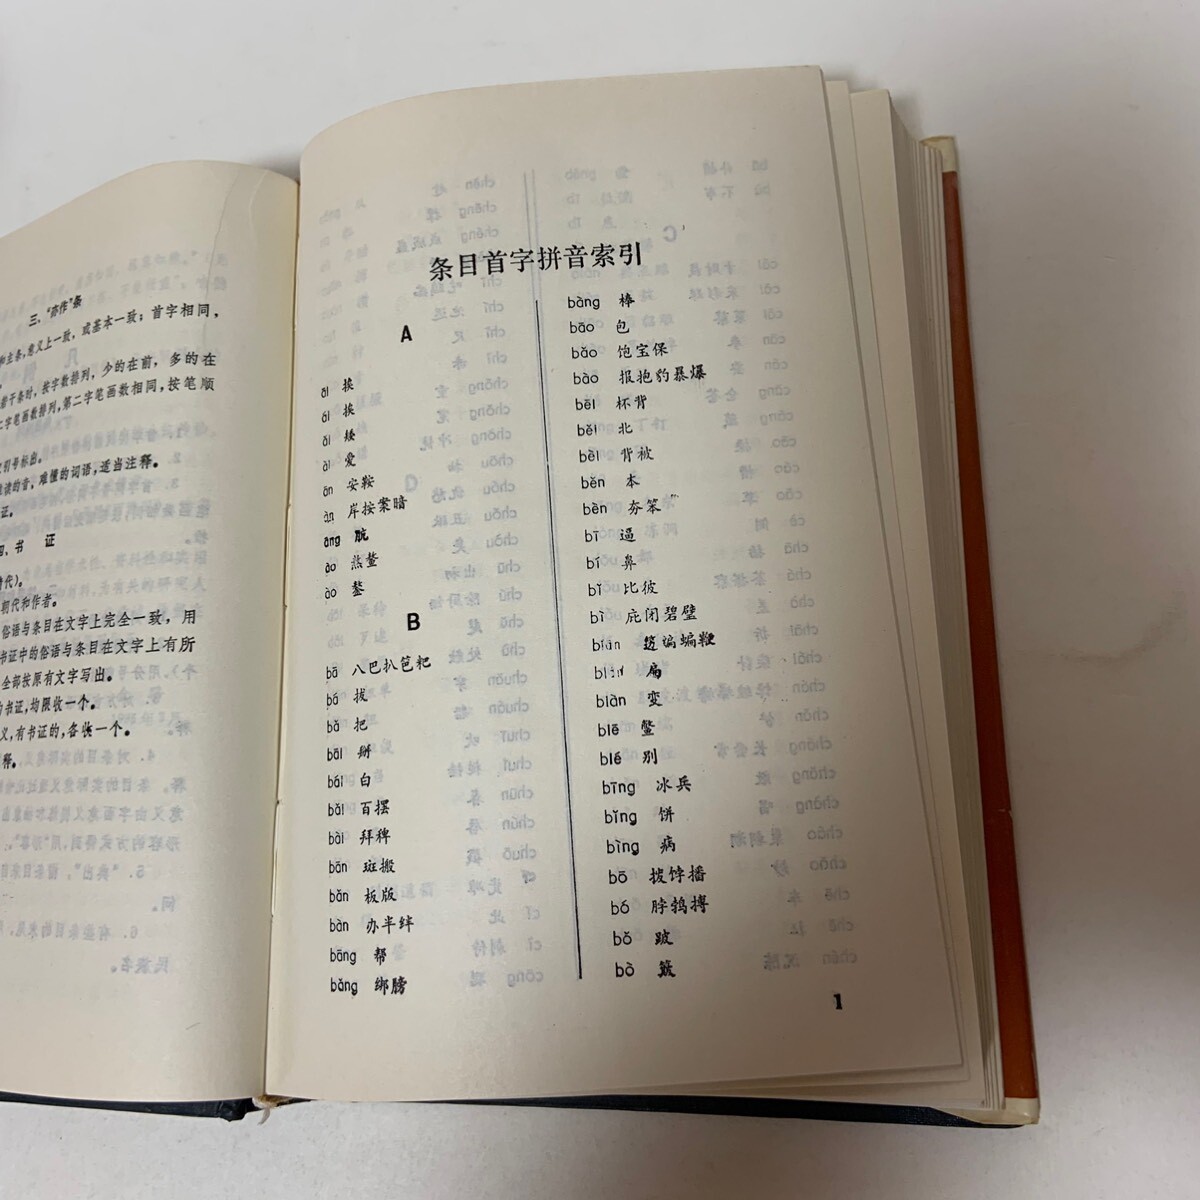 三、“亦作”条
和主条,意义上一致,或基本一致;首字相同,
若干条时,按字数排列,少的在前,多的在
二字笔画数排列,第二字笔画数相同,按笔顺
引号标出。
读的音,难懂的词语,适当注释。
证。
四、书 证
时代)。
朝代和作者。
俗语与条目在文字上完全一致,用
书证中的俗语与条目在文字上有所
全部按原有文字写出。
的书证,均限收一个。
义,有书证的,各收一个。
释。
条目首字拼音索引
A
āi 挨
ái 挨
ǎi 矮
ài 爱
ān 安鞍
àn 岸按案暗
āng 肮
áo 熬鳌
ào 鏊
B
bā 八巴扒笆粑
bá 拔
bǎ 把
bāi 掰
bái 白
bǎi 百摆
bài 拜稗
bān 斑搬
bǎn 板版
bàn 办半绊
bāng 帮
bǎng 绑膀
bàng 棒
bāo 包
bǎo 饱宝保
bào 报抱豹暴爆
bēi 杯背
běi 北
bèi 背被
běn 本
bèn 夯笨
bī 逼
bí 鼻
bǐ 比彼
bì 庇闭碧璧
biān 编蝙鞭
biǎn 扁
biàn 变
biē 鳖
bié 别
bīng 冰兵
bǐng 饼
bìng 病
bō 拨饽播
bó 脖鹁搏
bǒ 跛
bò 簸
1